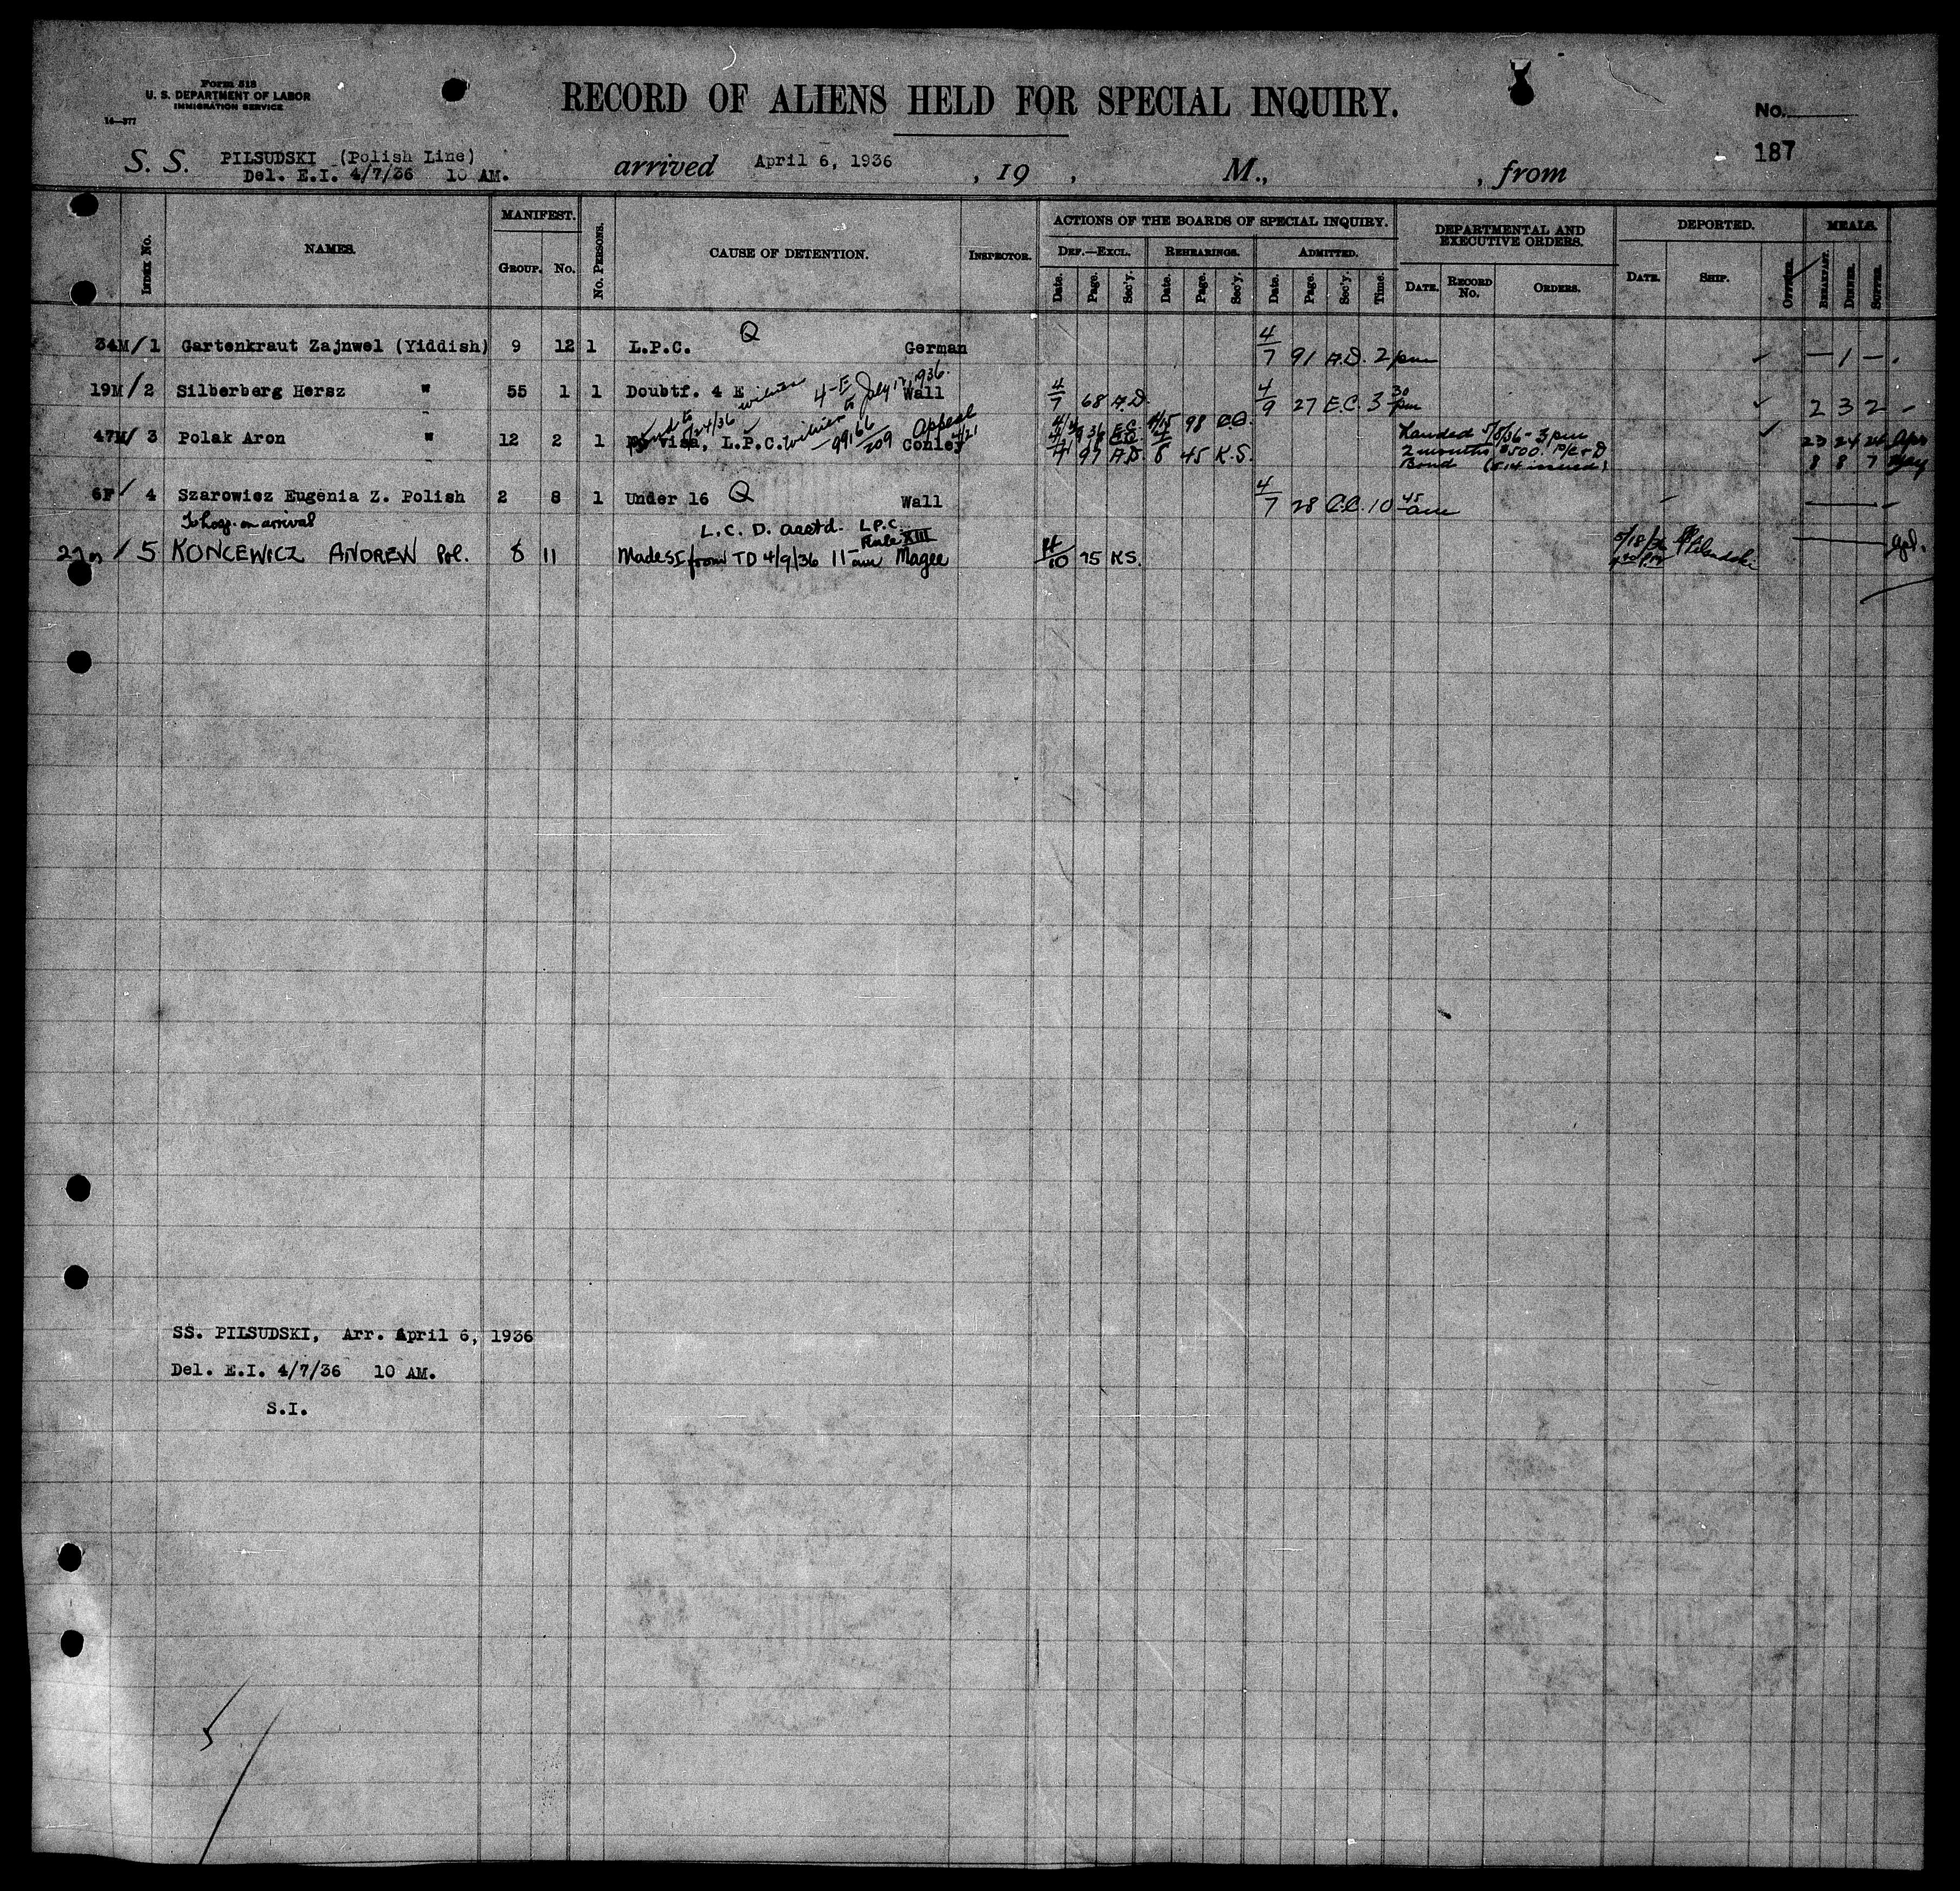 Form 518
U. S. DEPARTMENT OF LABOR
IMMIGRATION SERVICE
14—377
RECORD OF ALIENS HELD FOR SPECIAL INQUIRY.
No.
187
S. S. PILSUDSKI (Polish Line) arrived April 6, 1936 , 19 , M., , from
Del. E.I. 4/7/36 10 AM.
INDEX No. NAMES. MANIFEST. GROUP. No. No. PERSONS. CAUSE OF DETENTION. INSPECTOR.
ACTIONS OF THE BOARDS OF SPECIAL INQUIRY.
DEF.—EXCL. REHEARINGS. ADMITTED.
Date. Page. Sec'y. Date. Page. Sec'y. Date. Page. Sec'y. Time.
DEPARTMENTAL AND EXECUTIVE ORDERS.
DATE. RECORD No. ORDERS.
DEPORTED.
DATE. SHIP. OFFICER.
MEALS.
BREAKFAST. DINNER. SUPPER.
34M/ 1 Gartenkraut Zajnwel (Yiddish) 9 12 1 L.P.C. Q German 4/7 91 A.D. 2 pm ✓ — 1 —
19M/ 2 Silberberg Hersz " 55 1 1 Doubtf. 4 E Wall 4/7 68 A.D. 4/9 27 E.C. 3 30 pm ✓ 2 3 2 —
4-E to July 1936.
47M/ 3 Polak Aron " 12 2 1 visa, L.P.C. 99166/209 Conley Appeal 4/21
36 E.C. 4/15 98
4/7 97 A.D. 8 45 K.S.
Landed 5/8/36 - 3 pm
2 months $500. P/C & D
Bond (514 issued)
✓ 23 24 24 Apr
8 8 7 May
6F/ 4 Szarowicz Eugenia Z. Polish 2 8 1 Under 16 Q Wall 4/7 28 C.C. 10 45 am
To hosp. on arrival
L.C.D. L.P.C.
Rule XIII
27m / 5 KONCEWICZ ANDREW Pol. 8 11 Made SI from TD 4/9/36 11— am Magee 4/10 75 KS. 5/18/36 Pilsudski
SS. PILSUDSKI, Arr. April 6, 1936
Del. E.I. 4/7/36 10 AM.
S.I.
5